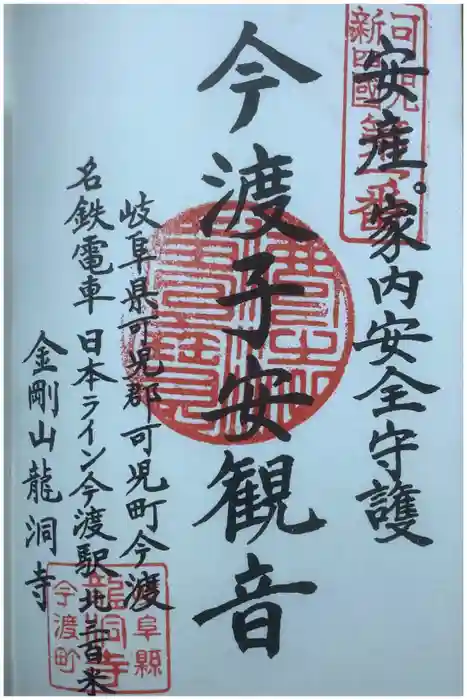 安産。家内安全守護
今渡子安観音
岐阜県可児郡可児町今渡
名鉄電車日本ライン今渡駅北三百米
金剛山龍洞寺
可児
新四國
阜縣
龍洞寺
今渡町